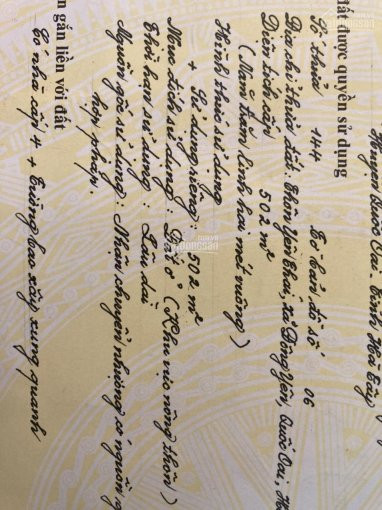 Huyện Quốc Oai. Tỉnh Hà Tây
đất được quyền sử dụng
Số thửa 144 Tờ bản đồ số 06
Địa chỉ thửa đất: Thôn Yên Thái, xã Đông Yên, Quốc Oai, H
Diện tích cấp 502 m²
(Năm trăm linh hai mét vuông)
Hình thức sử dụng
+ Sử dụng riêng: 502 m²
Mục đích sử dụng: Đất ở (Khu vực nông thôn)
Thời hạn sử dụng: Lâu dài
Nguồn gốc sử dụng: Nhận chuyển nhượng có nguồn g
hợp pháp.
n gắn liền với đất
Có nhà cấp 4 + Tường bao xây xung quanh